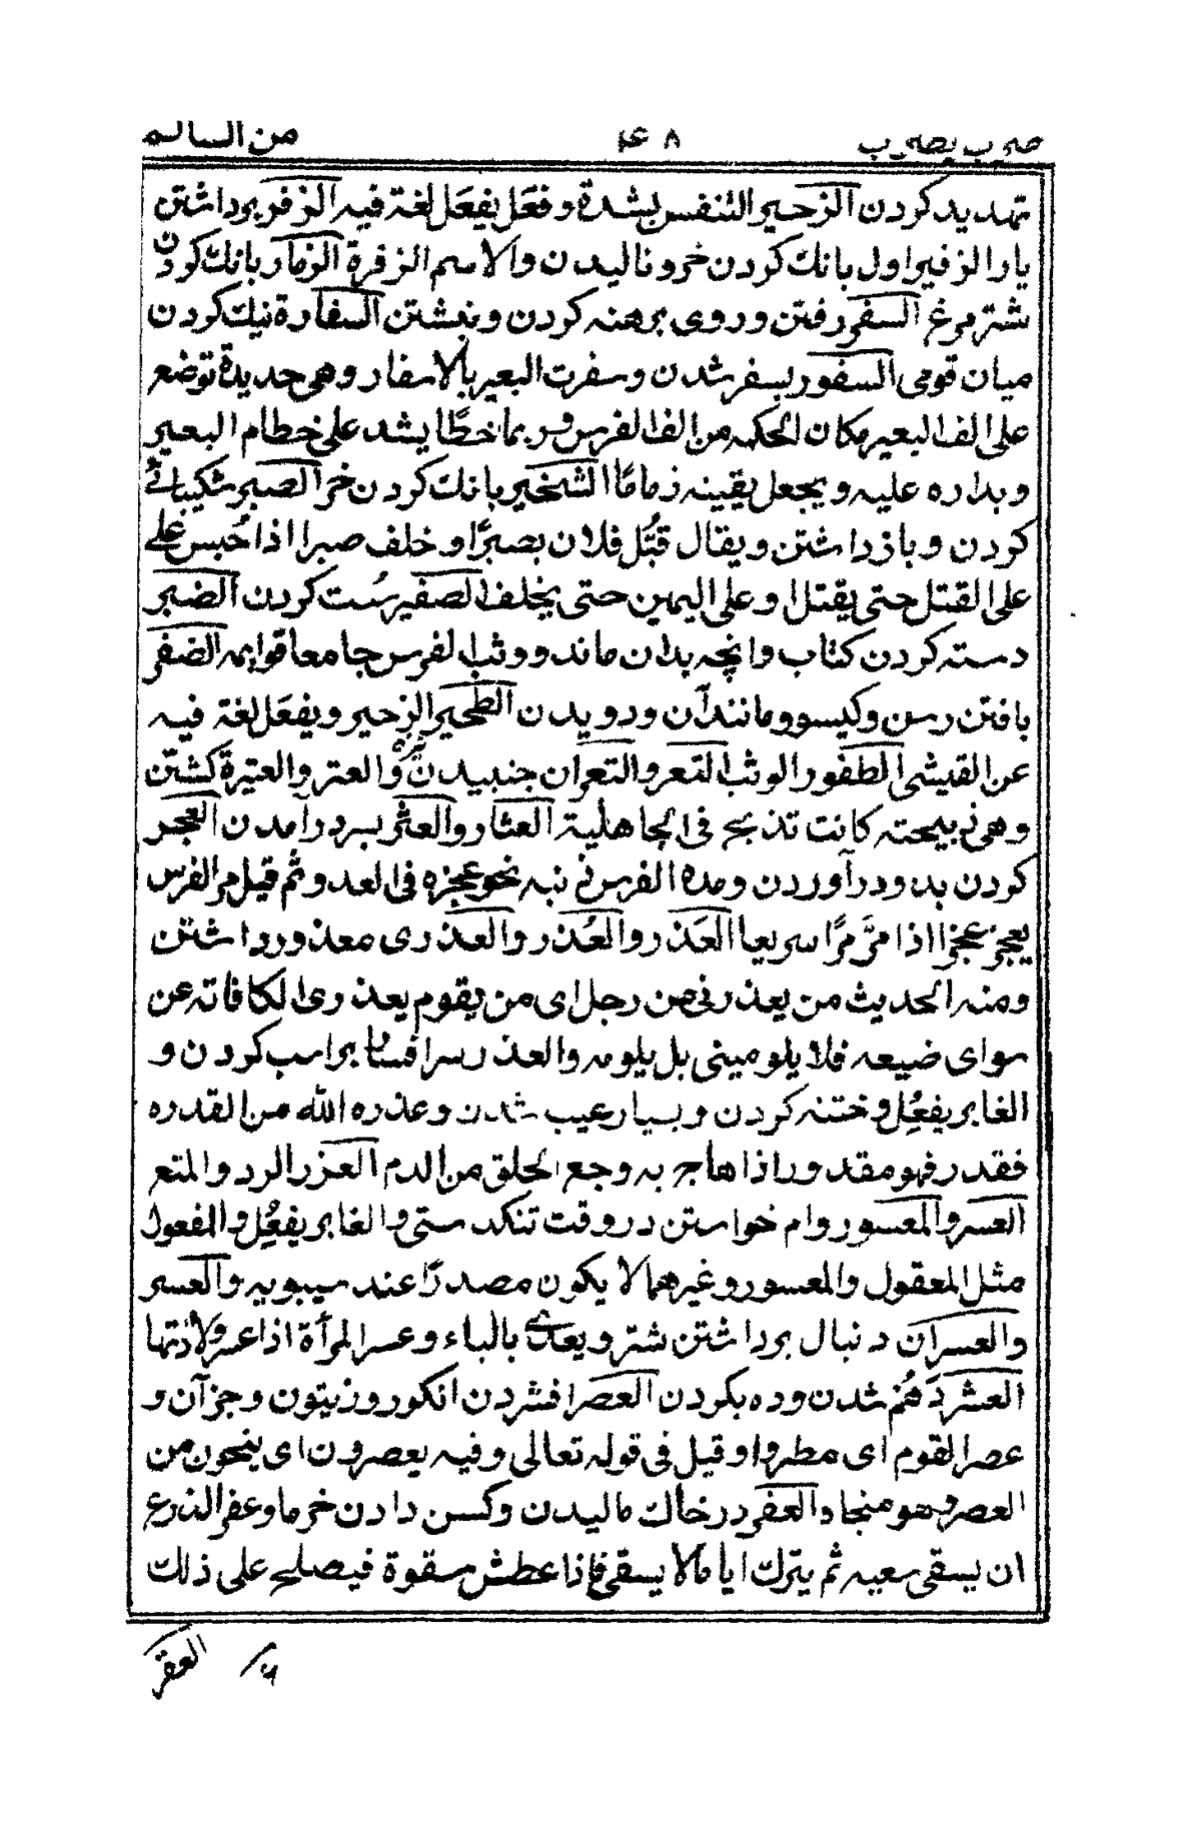 ضرب يضرب ۴۸ من السالم
تهديد كردن الزحير التنفس بشدة وفعَل يفعَل لغة فيه الزفر برداشتن
بار الزفير اول بانك كردن خر و ناليدن والاسم الزفرة الزمار بانك كردن
شتر مرغ السفر رفتن و روى برهنه كردن و نبشتن السفارة نيك كردن
ميان قومى السفور بسفر شدن و سفرت البعير بالاسفار وهى حديدة توضع
على انف البعير مكان الحكمه من انف الفرس و ربما خطًا يشد على خطام البعير
و يداره عليه و يجعل يقينه زمامًا الشخير بانك كردن خر الصبر شكيبائے
كردن و باز داشتن و يقال قتُل فلان بصبرًا و خلف صبرا اذا حُبس علے
على القتل حتى يقتل او على اليمين حتى يخلف الصفير سُت كردن الضبر
دسته كردن كتاب وانچه بدان ماند و وثب الفرس جامعا قوايمه الضفر
بافتن رسن و كيسو و مانندآن و دويدن الطحير الزحير و يفعَل لغة فيه
عن القيشى الطفور الوثب التعر والتعران جنبيدن والعتر والعتيرة كشتن
وهى ذبيحته كانت تذبح فى الجاهلية العثار والعثر بسر درآمدن العجر
كردن بد و درآوردن و مده الفرس ذنبه نحو عجزه فى العدو ثم قيل مر الفرس
يعجِز عجزا اذا مرَّ مرًا سريعا العَذر والعُذر والعذرى معذور داشتن
ومنه الحديث من يعذرنى من رجل اى من يقوم بعذرى الكافاته عن
سواى ضيعه فلا يلومينى بل يلومه والعذر سرافسار براسب كردن و
الغابر يفعُِل و ختنه كردن و بسيار عيب شدن و عذره الله من القدره
فقدر فهو مقدور اذا هاج به وجع الحلق من الدم العزر الرد والمتع
العسر والمعسور وام خواستن در وقت تنكدستى والغابر يفعُِل والمفعول
مثل المعقول والمعسور وغيرهما لا يكون مصدرًا عند سيبويه والعسر
والعسران دنبال برداشتن شتر و يعدے بالباء و عسر المرأة اذا عسر ولادتها
العشر دَهُم شدن و ده بكردن العصر افشردن انكور و زيتون و جز آن و
عصر القوم اى مطروا و قيل فى قوله تعالى وفيه يعصرون اى ينجون من
العصر وهو منجاد العفر در خاك ماليدن و كسن دادن خرما و عفر الذرع
ان يسقى سعيه ثم يترك اياما لا يسقى فاذا عطش سقوة فيصلح على ذلك
العقر